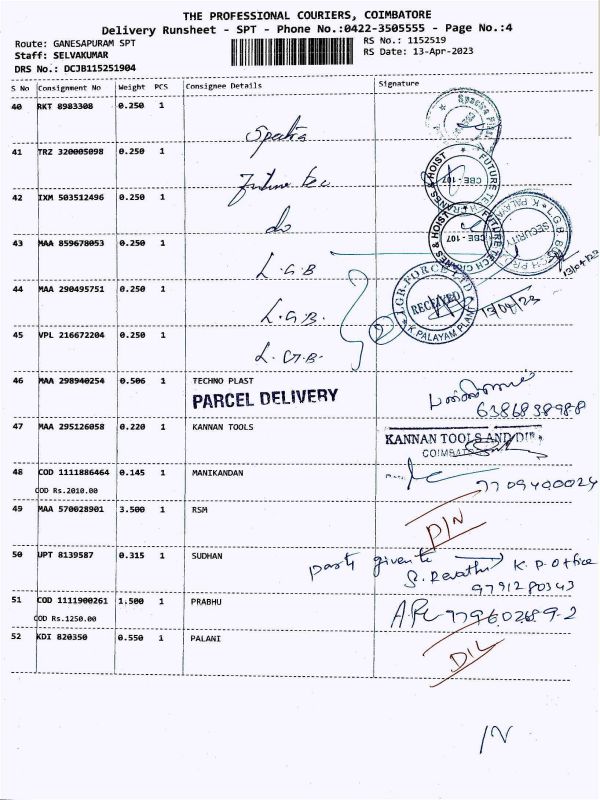 THE PROFESSIONAL COURIERS, COIMBATORE
Delivery Runsheet - SPT - Phone No.:0422-3505555 - Page No.:4
Route: GANESAPURAM SPT
Staff: SELVAKUMAR
DRS No.: DCJB115251904
RS No.: 1152519
RS Date: 13-Apr-2023
S No Consignment No Weight PCS Consignee Details Signature
40 RKT 8983308 0.250 1
41 TRZ 320005098 0.250 1
Future tec
42 IXM 503512496 0.250 1
do
FUTURE TECH CRANES & HOIST
CBE - 107
FUTURE TECH CRANES & HOIST
CBE - 107
SECURITY
43 MAA 859678053 0.250 1
L.G.B
13/04/23
44 MAA 290495751 0.250 1
L.G.B.
RECEIVED
K PALAYAM PLANT
13/04/23
45 VPL 216672204 0.250 1
L.G.B.
46 MAA 298940254 0.506 1 TECHNO PLAST
PARCEL DELIVERY
6386838988
47 MAA 295126058 0.220 1 KANNAN TOOLS
KANNAN TOOLS AND DIE
48 COD 1111886464 0.145 1 MANIKANDAN
COD Rs.2010.00
49 MAA 570028901 3.500 1 RSM
D/N
50 UPT 8139587 0.315 1 SUDHAN
S. Revathi K.P. Office
9791280343
51 COD 1111900261 1.500 1 PRABHU
COD Rs.1250.00
52 KDI 820350 0.550 1 PALANI
D/L
/N